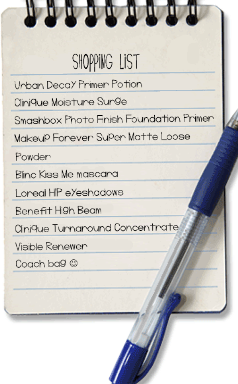 SHOPPING LIST
Urban Decay Primer Potion
Clinique Moisture Surge
Smashbox Photo Finish Foundation Primer
Makeup Forever Super Matte Loose
Powder
Blinc Kiss Me mascara
Loreal HiP eyeshadows
Benefit High Beam
Clinique Turnaround Concentrate
Visible Renewer
Coach bag ☺